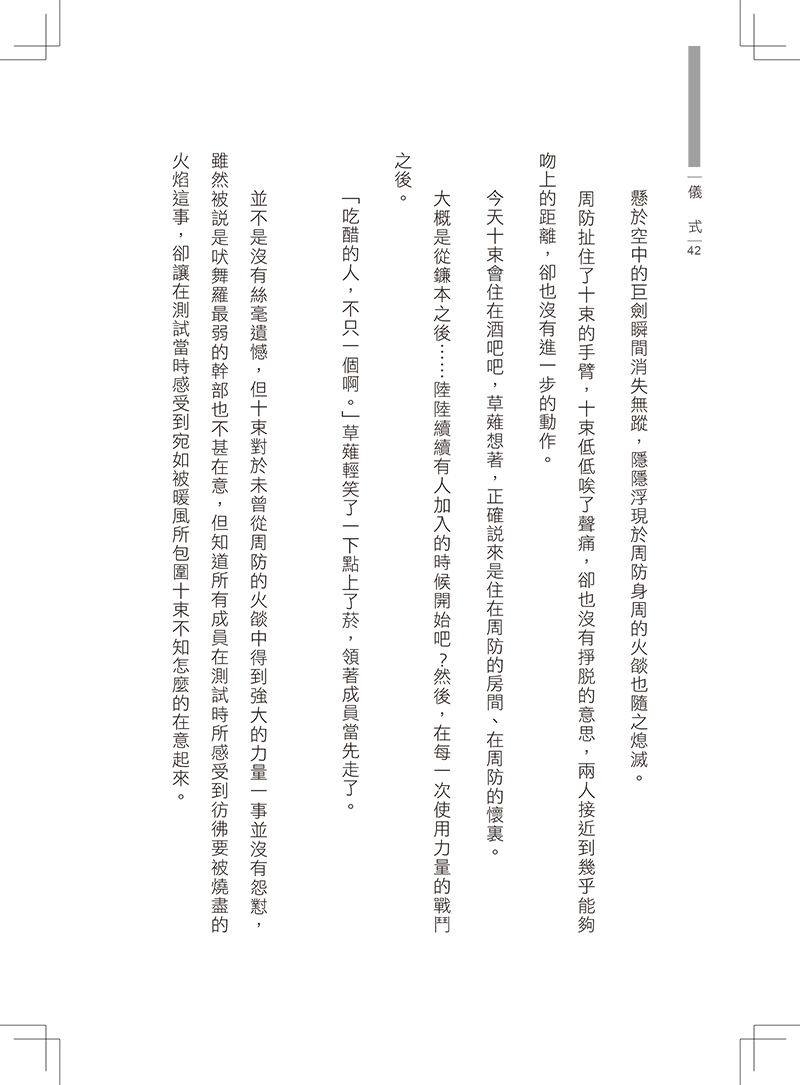 儀式
42
懸於空中的巨劍瞬間消失無蹤，隱隱浮現於周防身周的火燄也隨之熄滅。
周防扯住了十束的手臂，十束低低唉了聲痛，卻也沒有掙脫的意思，兩人接近到幾乎能夠
吻上的距離，卻也沒有進一步的動作。
今天十束會住在酒吧吧，草薙想著，正確説來是住在周防的房間、在周防的懷裏。
大概是從鐮本之後……陸陸續續有人加入的時候開始吧？然後，在每一次使用力量的戰鬥
之後。
「吃醋的人，不只一個啊。」草薙輕笑了一下點上了菸，領著成員當先走了。
並不是沒有絲毫遺憾，但十束對於未曾從周防的火燄中得到強大的力量一事並沒有怨懟，
雖然被説是吠舞羅最弱的幹部也不甚在意，但知道所有成員在測試時所感受到彷彿要被燒盡的
火焰這事，卻讓在測試當時感受到宛如被暖風所包圍十束不知怎麼的在意起來。